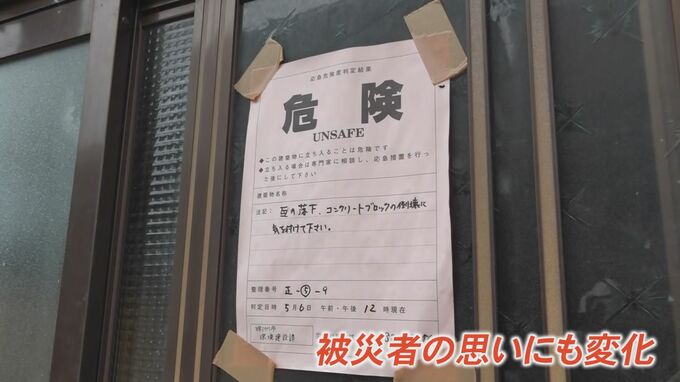 応急危険度判定結果
危険
UNSAFE
◆この建築物に立ち入ることは危険です
◆立ち入る場合は専門家に相談し、応急措置を行っ
た後にして下さい
建築物名称
注記: 瓦の落下、コンクリートブロックの倒壊に
気を付けて下さい。
整理番号 正-⑤-9
判定日時 5月6日 午前・午後 12時現在
環境建設課
被災者の思いにも変化